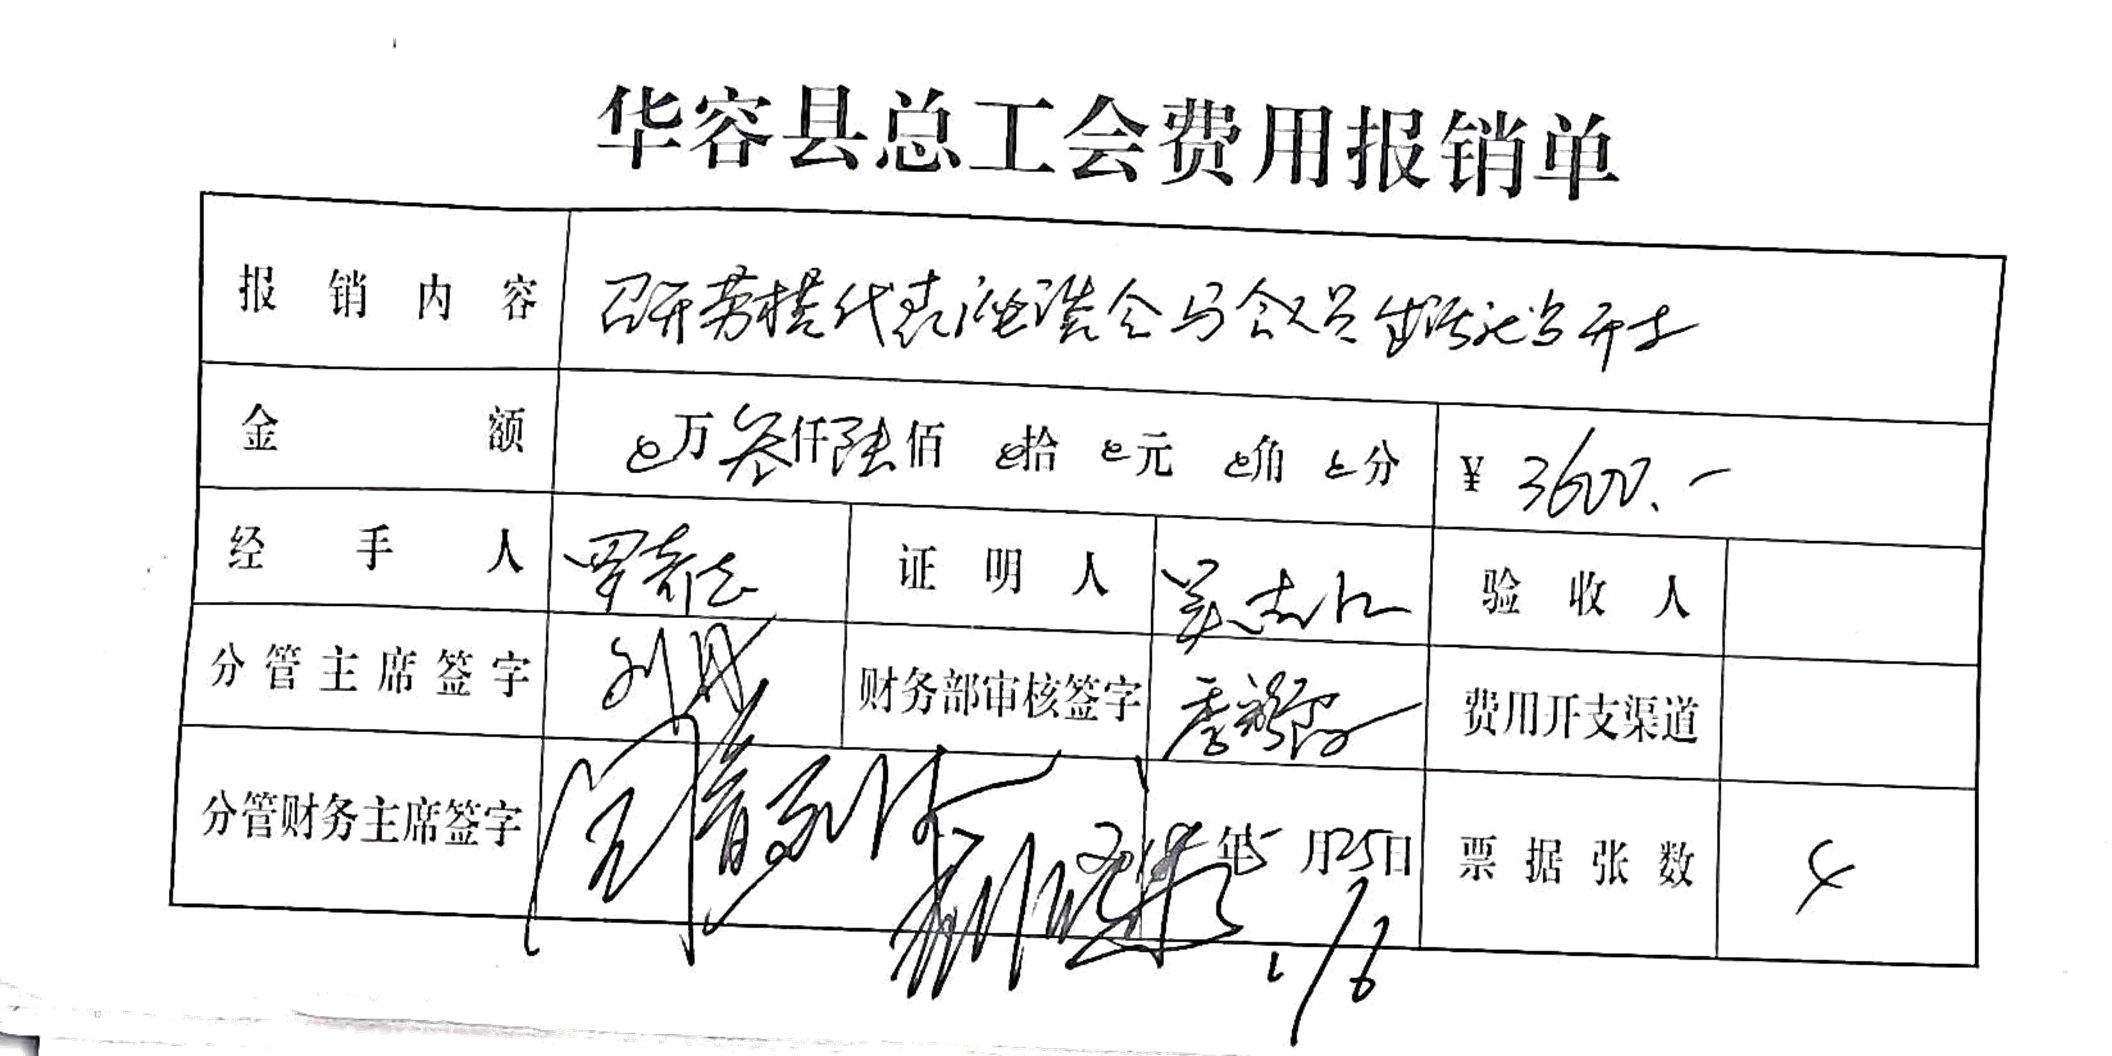 华容县总工会费用报销单
报销内容 召开劳模代表座谈会与会人员生活补助开支
金额 ⊘万叁仟陆佰⊘拾⊘元⊘角⊘分 ¥3600.-
经手人 证明人 验收人
分管主席签字 刘 财务部审核签字 费用开支渠道
分管财务主席签字 年5月25日 票据张数 4
1/6